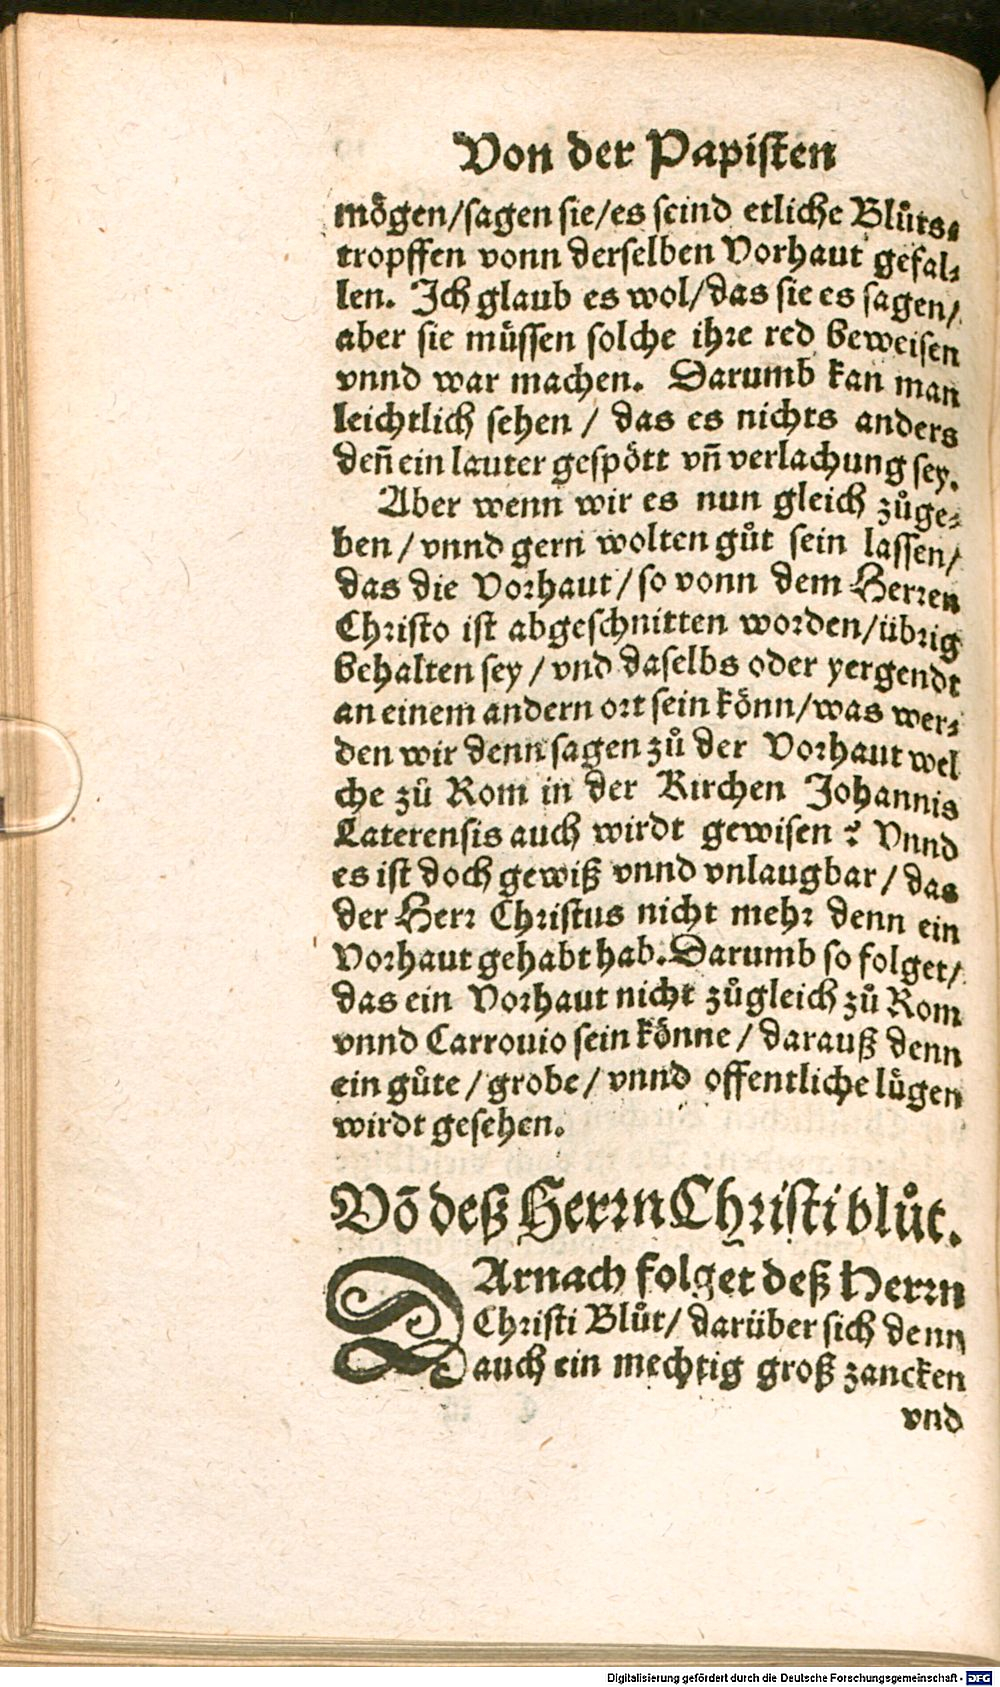 Von der Papisten
mögen/sagen sie/es seind etliche Blůts⸗
tropffen vonn derselben Vorhaut gefal⸗
len. Ich glaub es wol/das sie es sagen/
aber sie müssen solche ihre red beweisen
vnnd war machen. Darumb kan man
leichtlich sehen / das es nichts anders
deñ ein lauter gespött vñ verlachung sey.
Aber wenn wir es nun gleich zůge⸗
ben / vnnd gern wolten gůt sein lassen/
das die Vorhaut / so vonn dem Herren
Christo ist abgeschnitten worden/übrig
behalten sey / vnd daselbs oder yergendt
an einem andern ort sein könn/was wer⸗
den wir denn sagen zů der Vorhaut wel
che zů Rom in der Kirchen Johannis
Laterensis auch wirdt gewisen ? Vnnd
es ist doch gewiß vnnd vnlaugbar / das
der Herr Christus nicht mehr denn ein
Vorhaut gehabt hab. Darumb so folget/
das ein Vorhaut nicht zůgleich zů Rom
vnnd Carrouio sein könne / darauß denn
ein gůte / grobe / vnnd offentliche lügen
wirdt gesehen.
Võ deß Herrn Christi blůt.
DArnach folget deß Herrn
Christi Blůt/ darüber sich denn
auch ein mechtig groß zancken
vnd
Digitalisierung gefördert durch die Deutsche Forschungsgemeinschaft - DFG